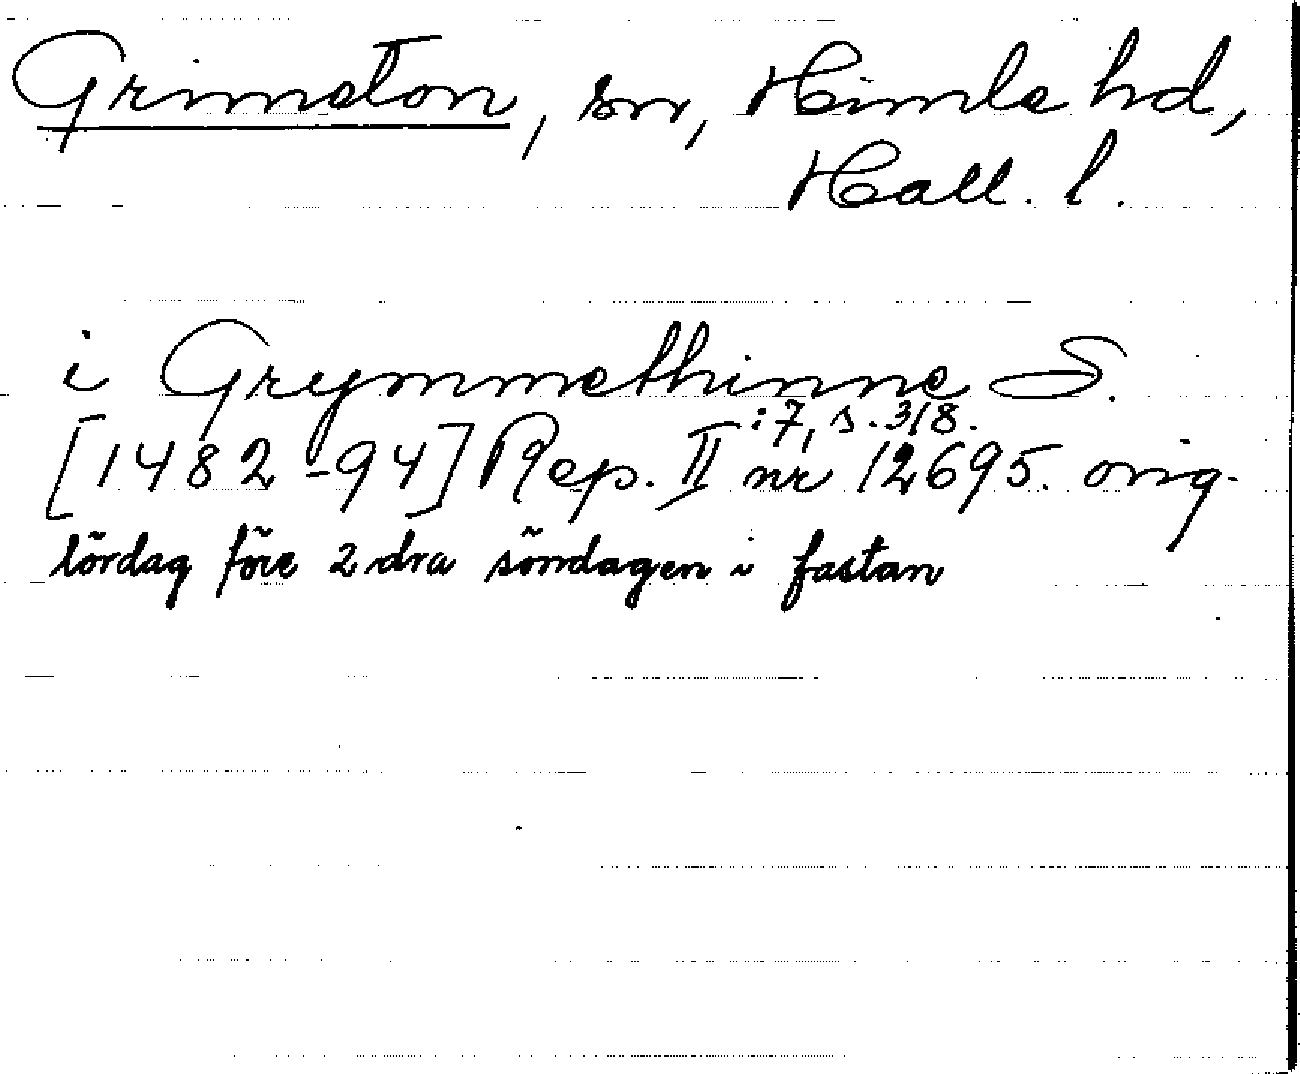 Grimeton, sn, Himle hd,
Hall. l.
i Grymmethinne S.
[1482-94] Rep. II:7, s. 318. nr 12695. orig.
lördag före 2 dra söndagen i fastan